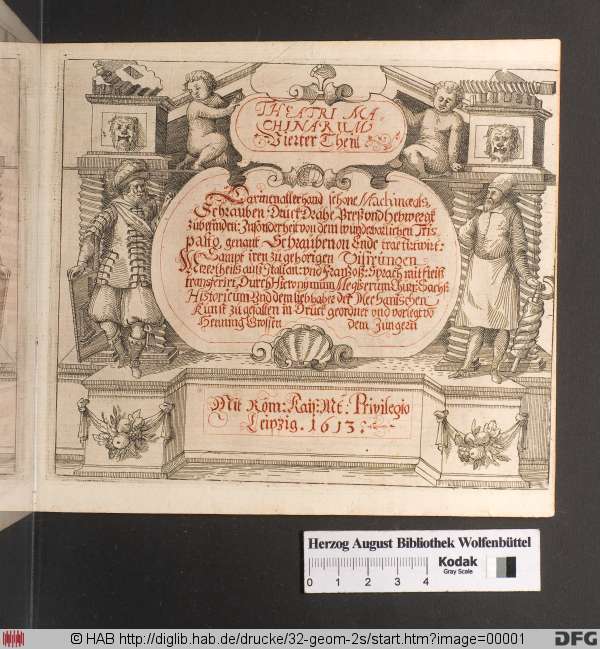 THEATRI MA-
CHINARUM
Vierter Theil
Darinen allerhand schöne Machinae als,
Schrauben Druck Drähe Press vnd Hebwergk
zubefinden: Insonderheit von dem wunderbarlichen Tris
genant Schrauben on Ende tractirt wirt:
Sampt iren zu gehörigen
auss Italian: vnd Frantzöß: Sprach mit fleiß
transferirt, Durch Hieronymum Megiserum Chur: Sächß
Historicum Vnd dem liebhabere der Mechanischen
Kunst zu gefallen in Druck geordnet vnd vorlegt vō
Henning Grossen dem Jungern
Mit Röm: Kaiß: Mt: Privilegio
Leipzig. 1613.
Herzog August Bibliothek Wolfenbüttel
Kodak
Gray Scale
0 1 2 3 4
© HAB http://diglib.hab.de/drucke/32-geom-2s/start.htm?image=00001
DFG